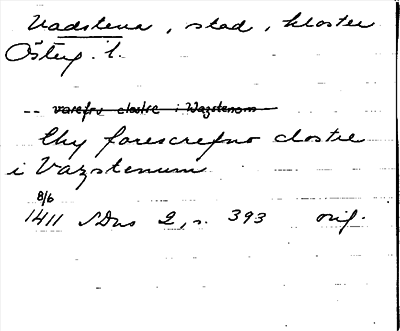 Vadstena, stad, kloster
Österg. l.
-- varefrv clostre i Wazstenom
thy forescrefno clostre
i Vazstenum
8/6
1411 SDns 2, s. 393 orig.